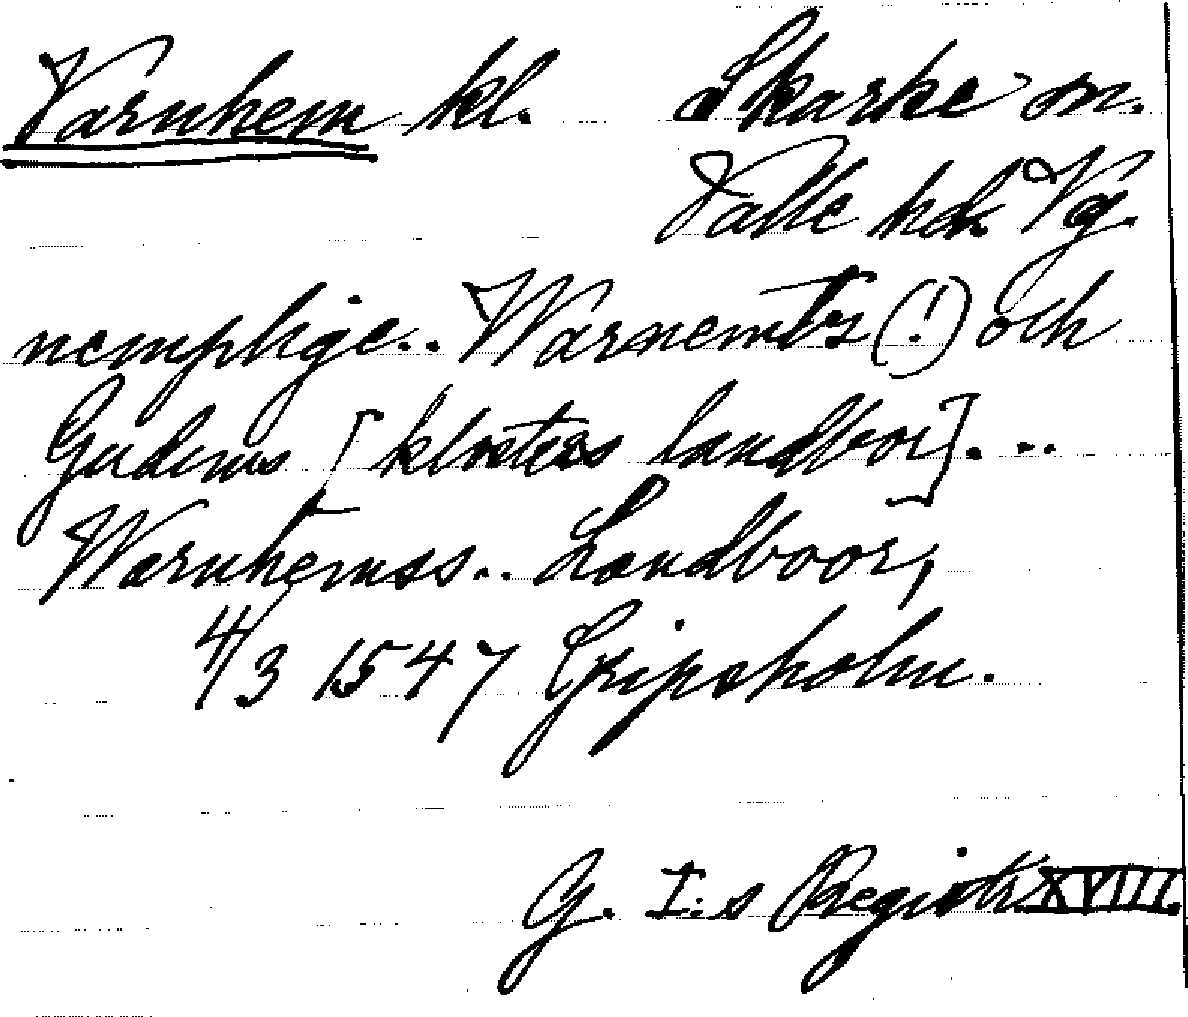 Varnhem kl. Skarke sn.
Valle hd. Vg.
nemplige.. Warnemtz (!) och
Gudems [klosters landbor]. ...
Warnhemss.. Landboor,
4/3 1547 Gripsholm.
G. I:s Registr. XVIII.